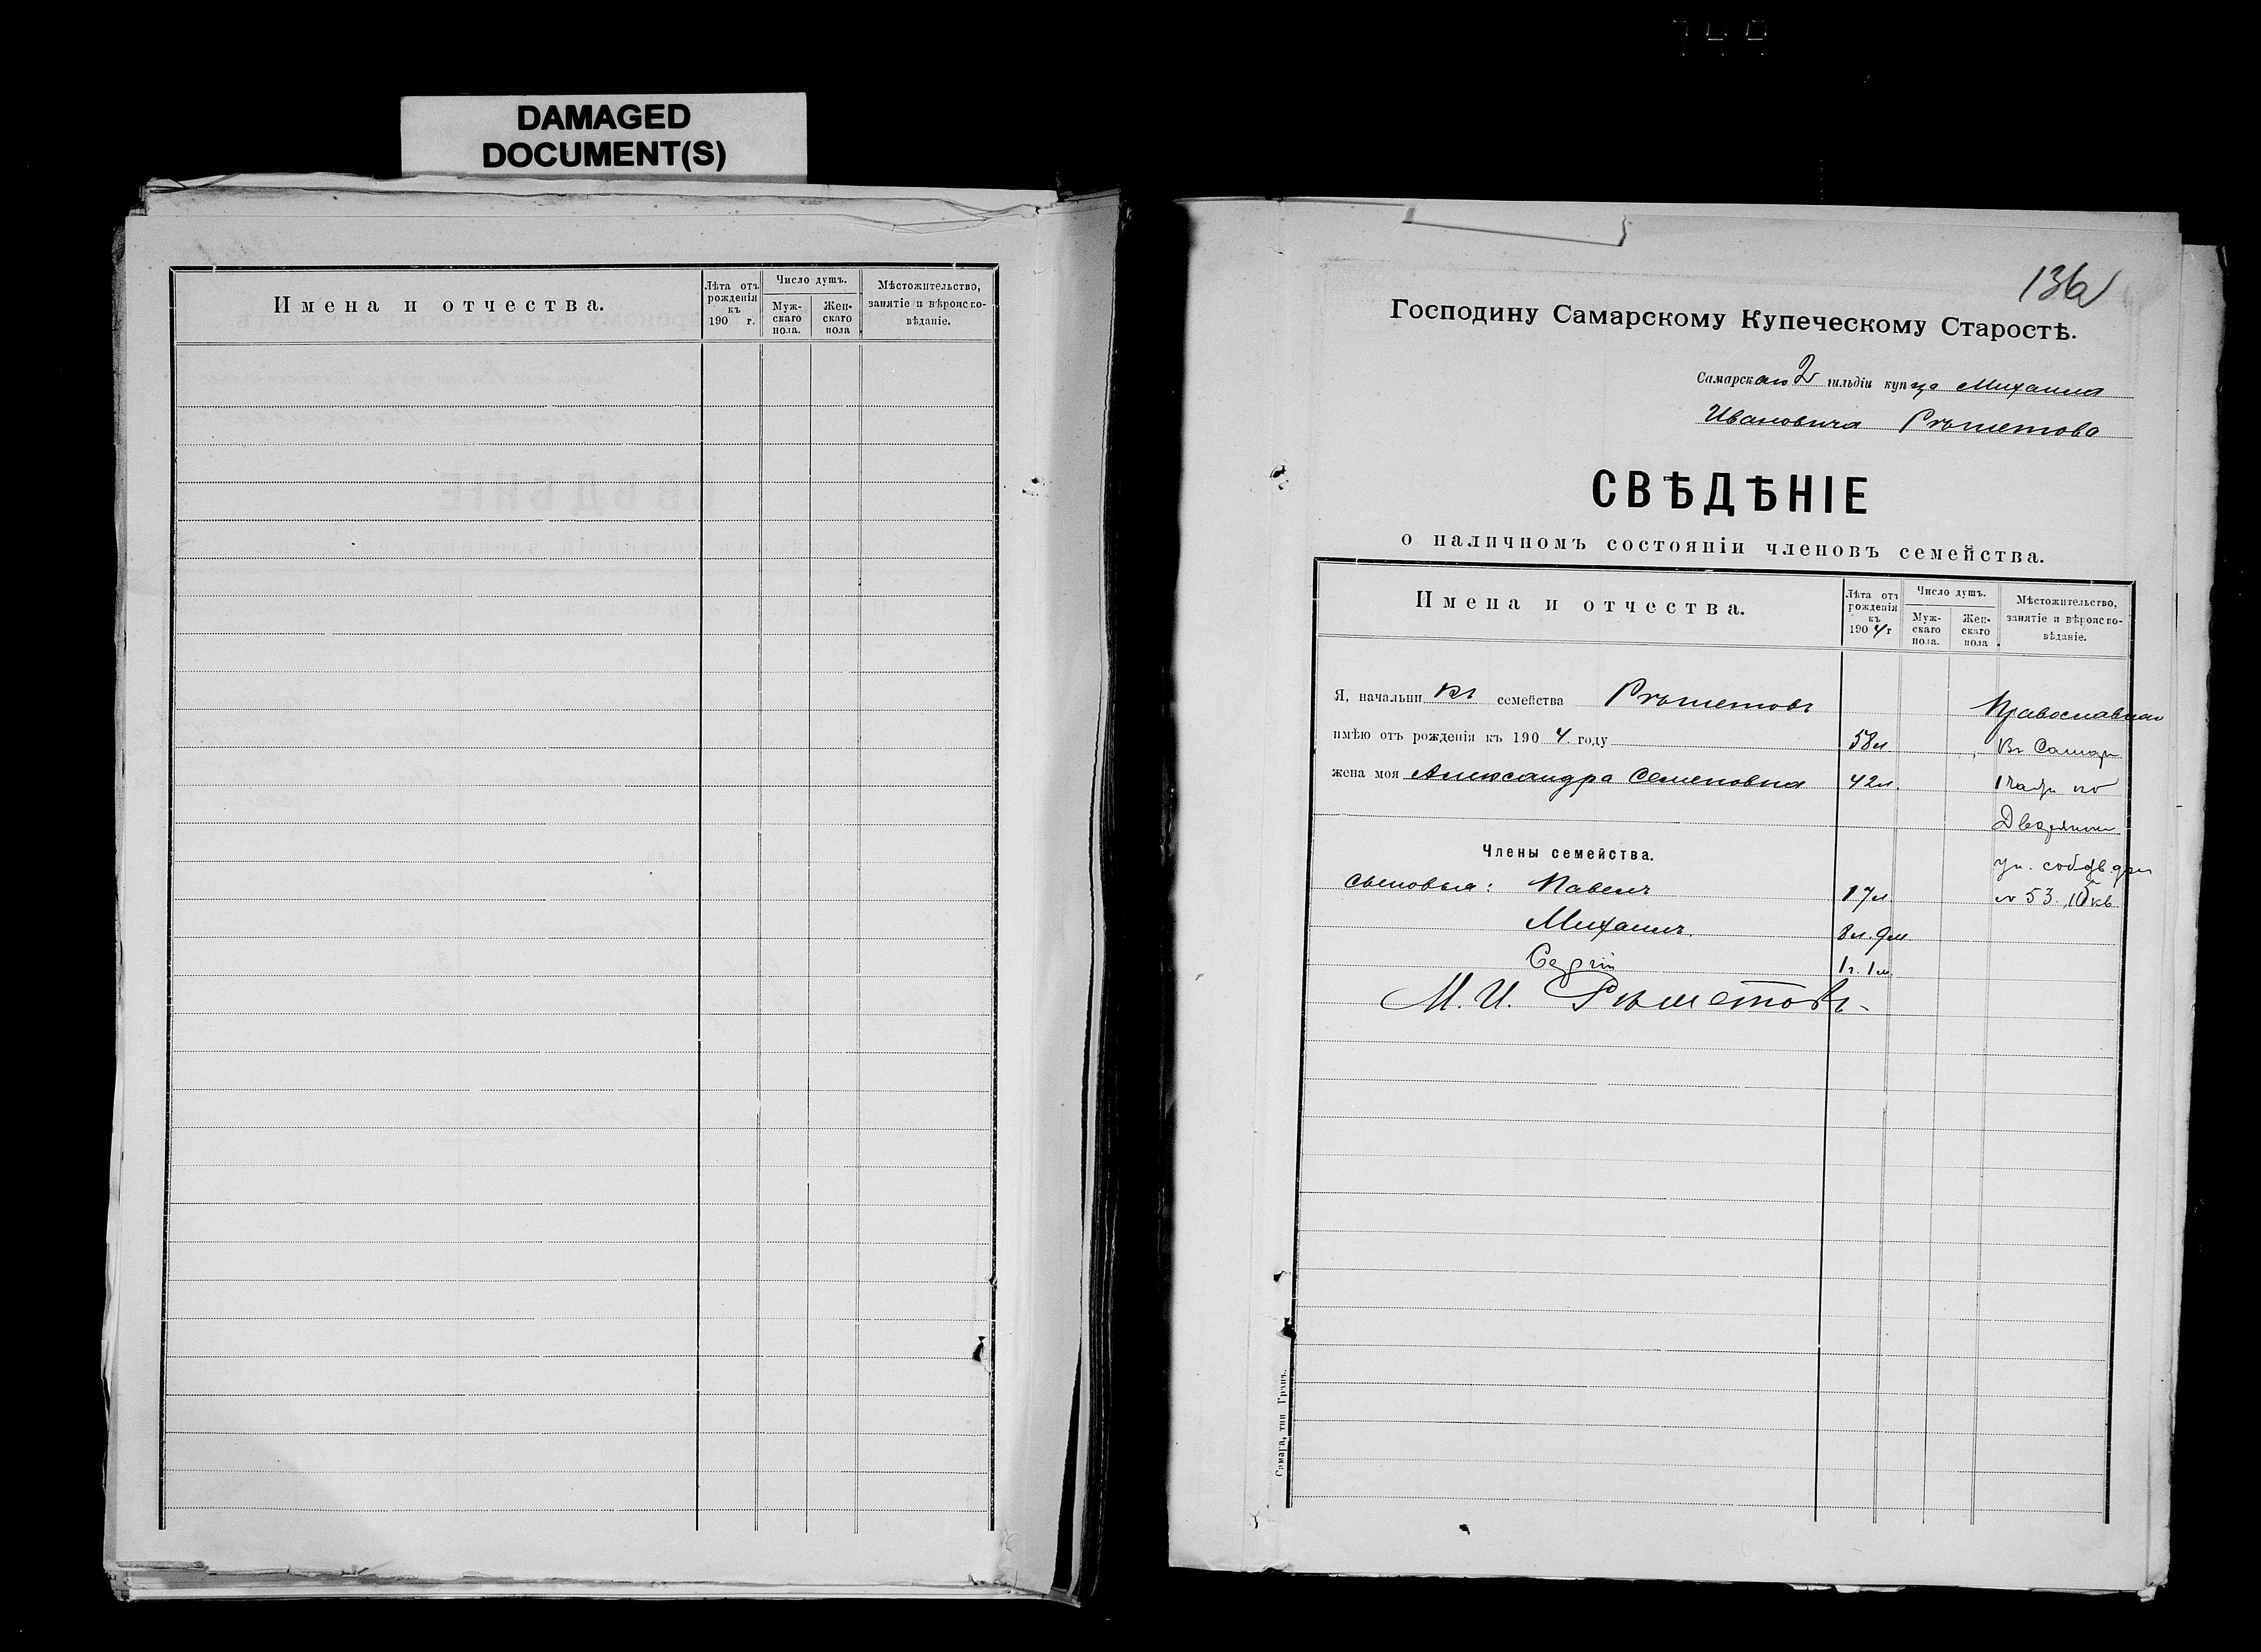 DAMAGED
DOCUMENT(S)
Имена и отчества.
Лѣта отъ рожденія къ 190 г.
Число душъ.
Мужскаго пола.
Женскаго пола
Мѣстожительство, занятіе и вѣроисповѣданіе.
136
Господину Самарскому Купеческому Старостѣ.
Самарскаго 2 гильдіи купца Михаила
Ивановича Рѣшетова
СВѢДѢНІЕ
о наличномъ состояніи членовъ семейства.
Имена и отчества.
Лѣта отъ рожденія къ 1904 г
Число душъ.
Мужскаго пола.
Женскаго пола
Мѣстожительство, занятіе и вѣроисповѣданіе.
Я, начальникъ семейства Рѣшетовъ Православнаго
имѣю отъ рожденія къ 1904 году 58 л. Въ Самарѣ
жена моя Александра Семеновна 42 л. 1 части по
Дворянск
Члены семейства.
ул. соб.
сыновья: Павелъ 17 л. № 53
Михаилъ 8 л. 9 м.
Сергій 1 г. 1 м.
М. И. Рѣшетовъ
Самара, тип Гранъ.